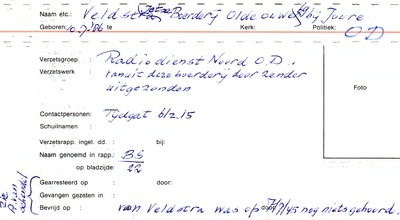 Naam etc.: Veldstra Boerderij Oldeouwer bij Joure
Geboren: te Kerk: Politiek: OD
Verzetsgroep : Radiodienst Noord O.D.
Verzetswerk : vanuit deze boerderij door zender
uitgezonden
Foto
Contactpersonen: Tijdgat 6/2.15
Schuilnaam :
Verzetsrapp. ingel. dd. : bij:
Naam genoemd in rapp.: B.S
op bladzijde: 22
Gearresteerd op : door:
Gevangen gezeten in :
Bevrijd op : van Veldstra was op door 7/7/45 nog niets gehoord.
Zie
A. van